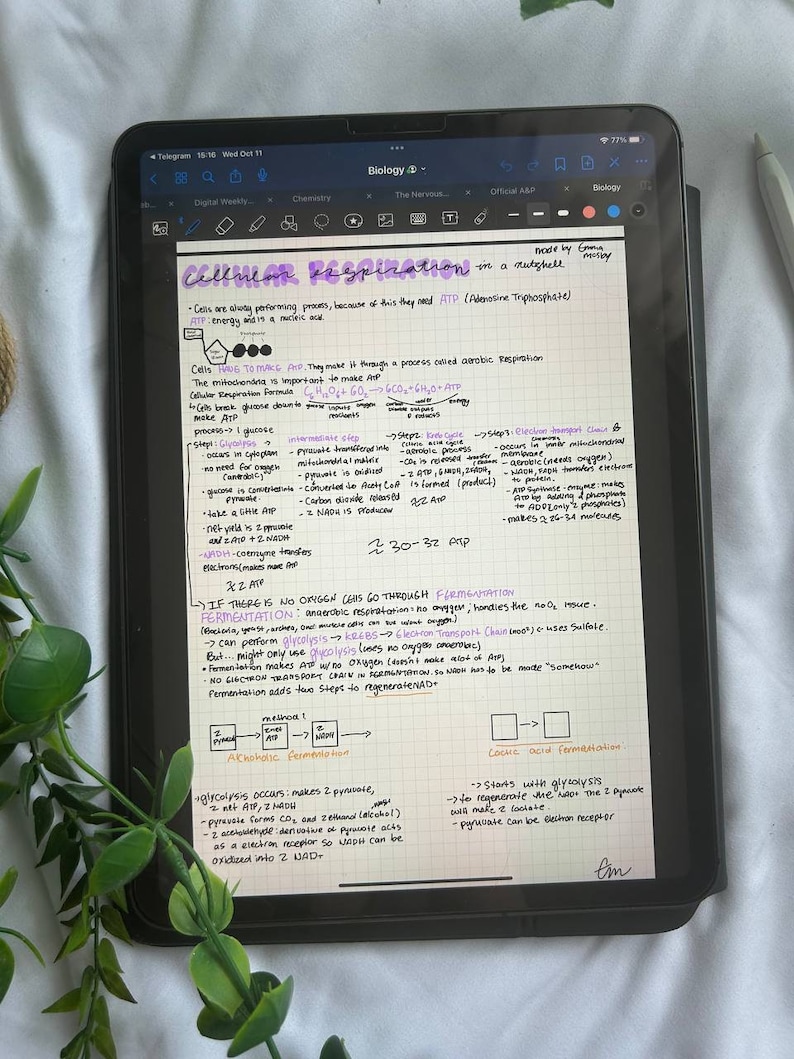 Telegram 15:16 Wed Oct 11
77%
Biology
Digital Weekly...
Chemistry
The Nervous...
Official A&P
Biology
made by Emma Mosby
Cellular Respiration in a nutshell
• Cells are always performing process, because of this they need ATP (Adenosine Triphosphate)
ATP: energy and is a nucleic acid.
Cells HAVE TO MAKE ATP. They make it through a process called aerobic Respiration
The mitochondria is important to make ATP
Cellular Respiration Formula C6H12O6 + 6O2 → 6CO2 + 6H2O + ATP
↳ Cells break glucose down to make ATP
glucose inputs oxygen
reactants
carbon dioxide water
outputs
products
energy
process → 1 glucose
Step1: Glycolysis →
• occurs in cytoplasm
• no need for oxygen (anerobic)
• glucose is converted into pyruvate.
• take a little ATP
• net yield is 2 pyruvate and 2 ATP + 2 NADH
- NADH - coenzyme transfers electrons (makes more ATP
≈ 2 ATP
intermediate step
- pyruvate transferred into mitochondrial matrix
- pyruvate is oxidized
- converted to Acetyl CoA
- Carbon dioxide released
- 2 NADH is produced
→ Step2: Kreb Cycle
Citric acid cycle
- aerobic process
- CO2 is released
- 2 ATP, 6 NADH, 2 FADH2
is formed (product)
≈ 2 ATP
→ Step3: Electron transport Chain &
chemiosis
- occurs in inner mitochondrial membrane
- aerobic (needs oxygen)
- NADH, FADH transfers electrons to protein.
- ATP Synthase - enzyme: makes ATP by adding a phosphate to ADP (only 2 phosphates)
- makes ≈ 26-34 molecules
≈ 30-32 ATP
↳ IF THERE IS NO OXYGEN CELLS GO THROUGH FERMENTATION
FERMENTATION: anaerobic respiration = no oxygen; handles the no O2 issue.
(Bacteria, yeast, archea, and muscle cells can live w/out oxygen.)
→ can perform glycolysis → KREBS → Electron Transport Chain (no O2) ← uses Sulfate.
But... might only use glycolysis (uses no oxygen anaerobic)
• Fermentation makes ATP w/no oxygen (doesn't make alot of ATP)
- NO ELECTRON TRANSPORT CHAIN IN FERMENTATION. So NADH has to be made "somehow"
Fermentation adds two steps to regenerate NAD+
method 1
2 pyruvate → 2 net ATP → 2 NADH →
Alchoholic fermentation
→
Lactic acid fermentation:
→ glycolysis occurs: makes 2 pyruvate, 2 net ATP, 2 NADH
- pyruvate forms CO2 and 2 ethanol (alcohol)
- 2 acetaldehyde: derivative of pyruvate acts as a electron receptor so NADH can be oxidized into 2 NAD+
→ Starts with glycolysis
→ to regenerate the NAD+ the 2 pyruvate will make 2 lactate.
- pyruvate can be electron receptor
Em